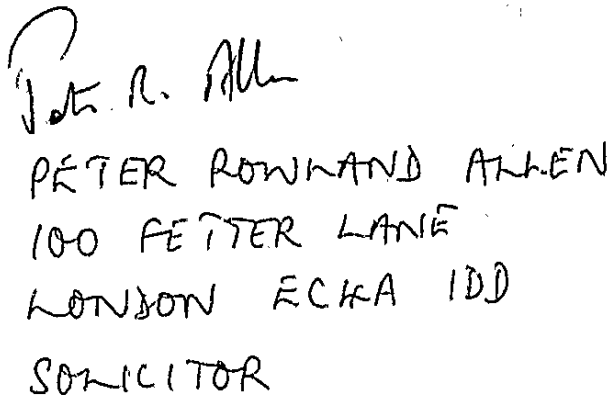 Peter R. Allen
PETER ROWLAND ALLEN
100 FETTER LANE
LONDON EC4A 1DD
SOLICITOR